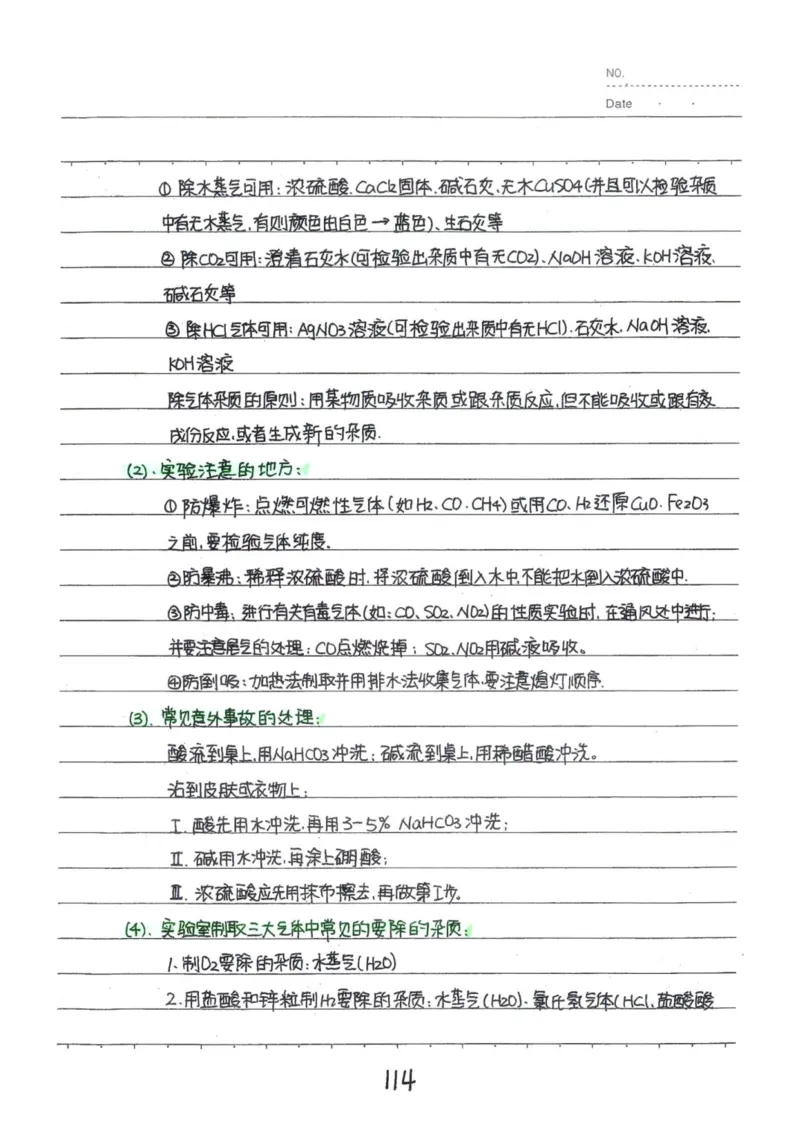 NO.
Date
① 除水蒸气可用：浓硫酸、CaCl2固体、碱石灰、无水CuSO4(并且可以检验杂质
中有无水蒸气，有则颜色由白色→蓝色)、生石灰等
② 除CO2可用：澄清石灰水(可检验出杂质中有无CO2)、NaOH溶液、KOH溶液、
碱石灰等
③ 除HCl气体可用：AgNO3溶液(可检验出杂质中有无HCl)、石灰水、NaOH溶液、
KOH溶液
除气体杂质的原则：用某物质吸收杂质或跟杂质反应，但不能吸收或跟有效
成份反应，或者生成新的杂质.
(2)、实验注意的地方：
①防爆炸：点燃可燃性气体(如H2、CO、CH4)或用CO、H2还原CuO、Fe2O3
之前，要检验气体纯度.
②防暴沸：稀释浓硫酸时，将浓硫酸倒入水中，不能把水倒入浓硫酸中.
③防中毒：进行有关有毒气体(如：CO、SO2、NO2)的性质实验时，在通风处中进行；
并要注意尾气的处理：CO点燃烧掉；SO2、NO2用碱液吸收。
④防倒吸：加热法制取并用排水法收集气体，要注意熄灯顺序.
(3)、常见意外事故的处理：
酸流到桌上，用NaHCO3冲洗；碱流到桌上，用稀醋酸冲洗。
沾到皮肤或衣物上：
Ⅰ. 酸先用水冲洗，再用3-5% NaHCO3冲洗；
Ⅱ. 碱用水冲洗，再涂上硼酸；
Ⅲ. 浓硫酸应先用抹布擦去，再做第Ⅰ步。
(4)、实验室制取三大气体中常见的要除的杂质：
1、制O2要除的杂质：水蒸气(H2O)
2、用盐酸和锌粒制H2要除的杂质：水蒸气(H2O)、氯化氢气体(HCl、盐酸酸
114